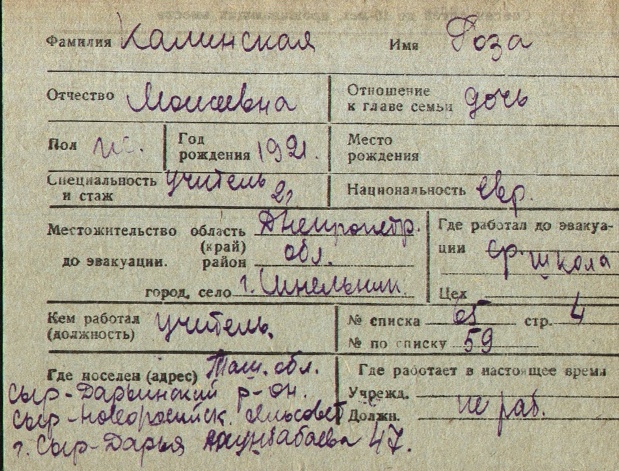 Фамилия Калинская Имя Роза
Отчество Моисеевна Отношение к главе семьи дочь
Пол ж. Год рождения 1921. Место рождения
Специальность и стаж учитель 2, Национальность евр.
Местожительство область Днепропетр.
(край) обл.
до эвакуации. район
город, село г. Синельник.
Где работал до эвакуации ср. школа
Цех
Кем работал (должность) учитель.
№ списка 65 стр. 4
№ по списку 59
Где поселен (адрес) Таш. обл.
Сыр-Дарьинский р-он.
Сыр-Новоросийск.
г. Сыр-Дарья 47.
Где работает в настоящее время
Учрежд.
Должн. не раб.